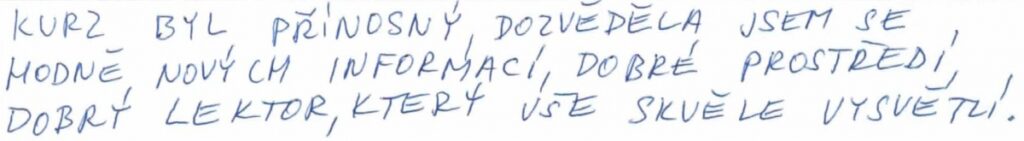 KURZ BYL PŘÍNOSNÝ, DOZVĚDĚLA JSEM SE,
HODNĚ NOVÝCH INFORMACÍ, DOBRÉ PROSTŘEDÍ,
DOBRÝ LEKTOR, KTERÝ VŠE SKVĚLE VYSVĚTLÍ.